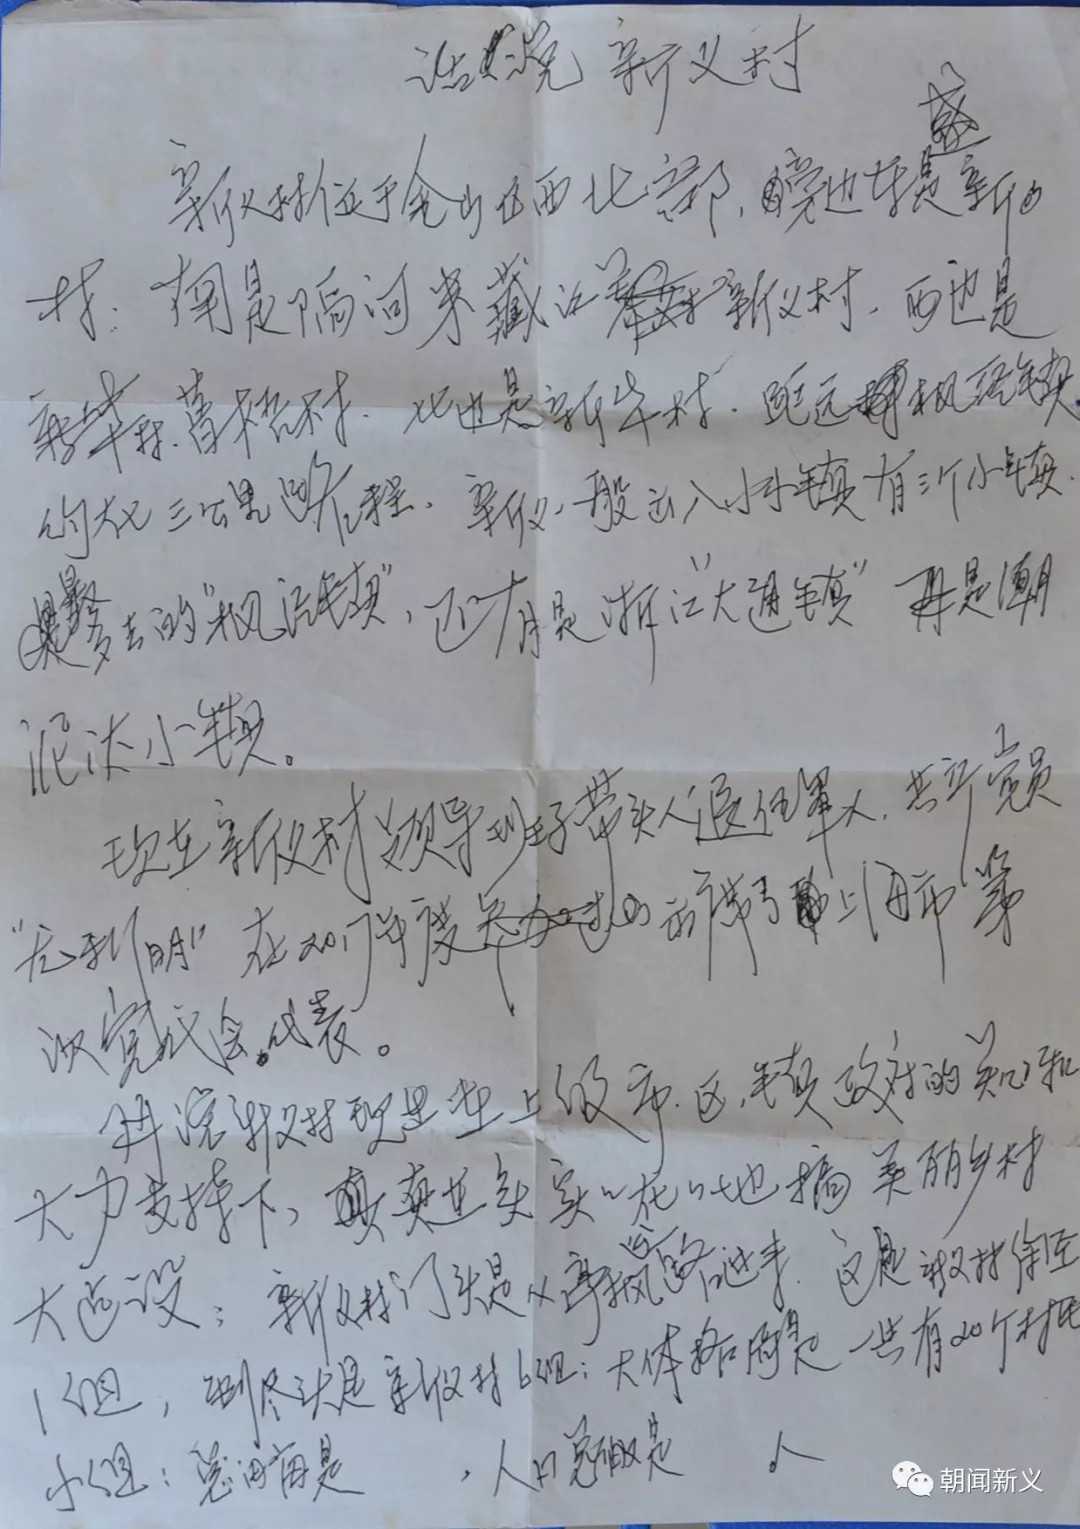 话说新义村
盛
新义村位于金山区西北部，旁边村是新
村：南是隔河 新义村，西边是
新华村、菖梧村．北边是新华村．距远枫泾镇
约大七三公里路程、新义一般出入小镇有三个小镇．
最多去的“枫泾镇”，还有是浙江“大通镇”再是潮
泥汰小镇。
现在新义村领导班子带头人退伍军人，共产党员
在2017年度 出席了上海市第
次党代会代表。
再漫新义村现是在上级市．区．镇政府的关心和
大力支持下，真真正实实在在地搞美丽乡村
大建设；新义村门头是从亭枫路进来．这是新义村
1组，到尽头是新义村6组；大体格局是一共有20个村民
小组：总面积是 ，人口总数是 人
朝闻新义